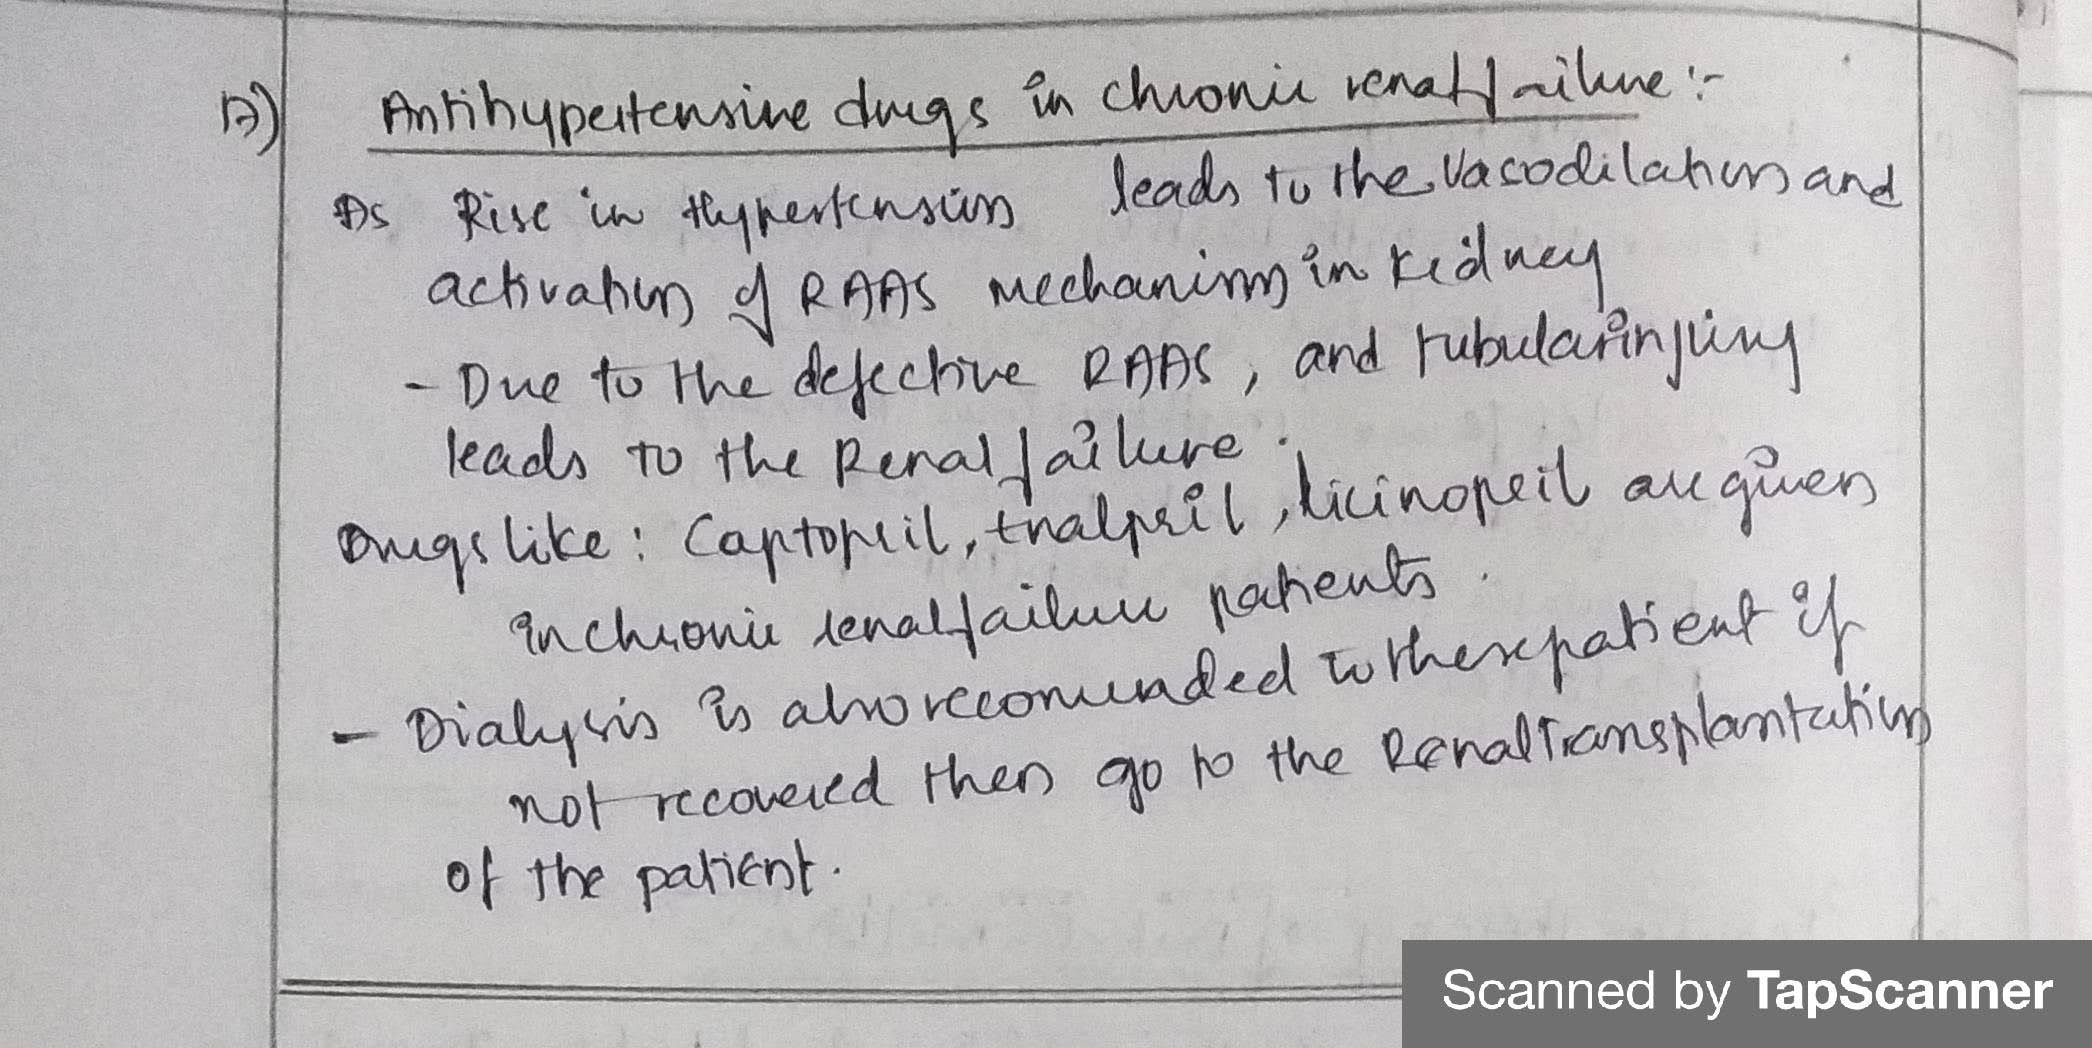 17) Antihypertensive drugs in chronic renal failure :-
As Rise in Hypertension leads to the Vasodilation and
activation of RAAS mechanism in kidney
- Due to the defective RAAS, and tubular injury
leads to the Renal failure.
Drugs like : Captopril, Enalpril, licinopril are given
in chronic renal failure patients.
- Dialysis is also recommended to these patient if
not recovered then go to the Renal Transplantation
of the patient.
Scanned by TapScanner